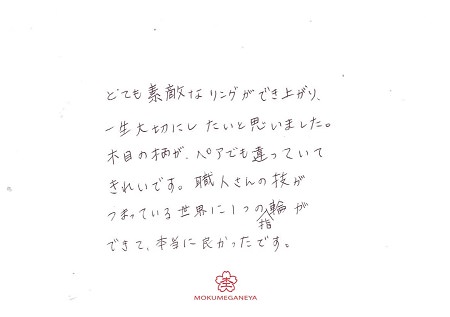 とても素敵なリングができ上がり、
一生大切にしたいと思いました。
木目の柄が、ペアでも違っていて
きれいです。職人さんの技が
つまっている世界に1つの指輪が
できて、本当に良かったです。
MOKUMEGANEYA